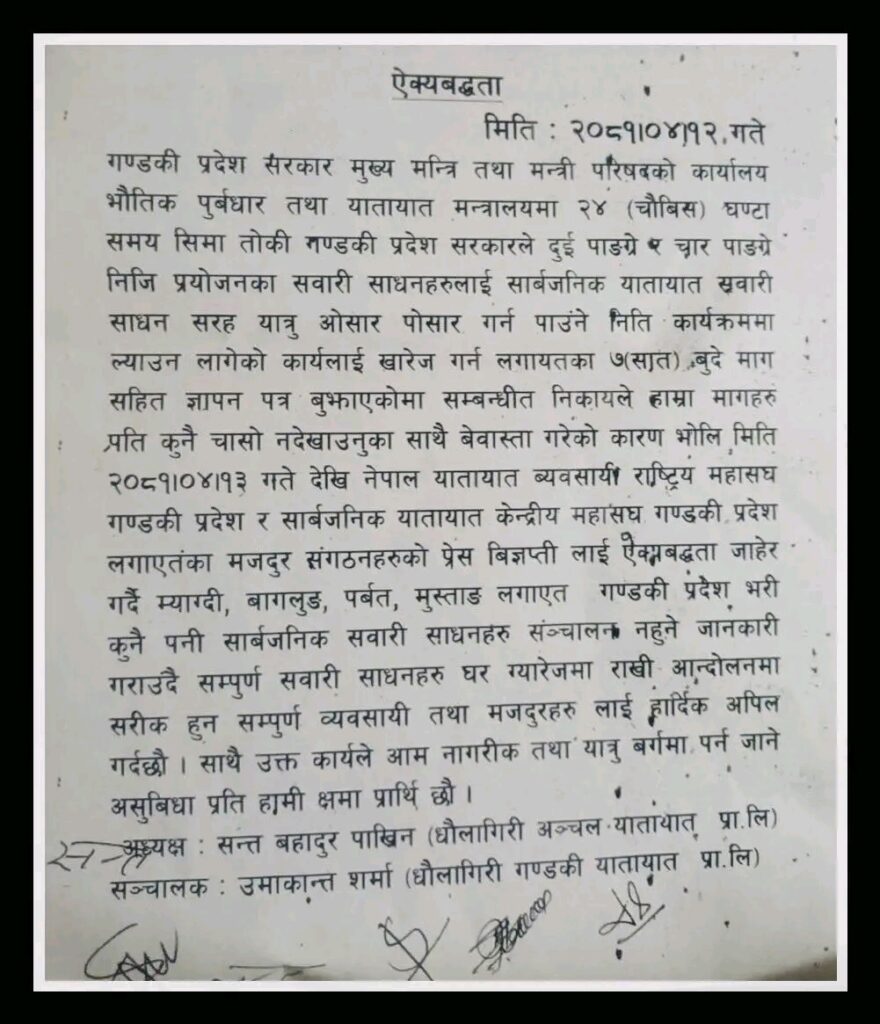 ऐक्यबद्धता
मिति : २०८१।०४।१२ गते
गण्डकी प्रदेश सरकार मुख्य मन्त्रि तथा मन्त्री परिषदको कार्यालय
भौतिक पुर्बधार तथा यातायात मन्त्रालयमा २४ (चौबिस) घण्टा
समय सिमा तोकी गण्डकी प्रदेश सरकारले दुई पाङग्रे र चार पाङग्रे
निजि प्रयोजनका सवारी साधनहरुलाई सार्बजनिक यातायात सवारी
साधन सरह यात्रु ओसार पोसार गर्न पाउंने निति कार्यक्रममा
ल्याउन लागेको कार्यलाई खारेज गर्न लगायतका ७(सात) बुदे माग
सहित ज्ञापन पत्र बुझाएकोमा सम्बन्धीत निकायले हाम्रा मागहरु
प्रति कुनै चासो नदेखाउनुका साथै बेवास्ता गरेको कारण भोलि मिति
२०८१।०४।१३ गते देखि नेपाल यातायात ब्यवसायी राष्ट्रिय महासघ
गण्डकी प्रदेश र सार्बजनिक यातायात केन्द्रीय महासघ गण्डकी प्रदेश
लगाएतंका मजदुर संगठनहरुको प्रेस बिज्ञप्ती लाई ऐक्यबद्धता जाहेर
गर्दै म्याग्दी, बागलुङ, पर्बत, मुस्ताङ लगाएत गण्डकी प्रदेश भरी
कुनै पनी सार्बजनिक सवारी साधनहरु संञ्चालन नहुने जानकारी
गराउदै सम्पुर्ण सवारी साधनहरु घर ग्यारेजमा राखी आन्दोलनमा
सरीक हुन सम्पुर्ण व्यवसायी तथा मजदुरहरु लाई हार्दिक अपिल
गर्दछौ । साथै उक्त कार्यले आम नागरीक तथा यात्रु बर्गमा पर्न जाने
असुबिधा प्रति हामी क्षमा प्रार्थि छौ ।
अध्यक्ष : सन्त बहादुर पाखिन (धौलागिरी अञ्चल यातायात प्रा.लि)
सञ्चालक : उमाकान्त शर्मा (धौलागिरी गण्डकी यातायात प्रा.लि)